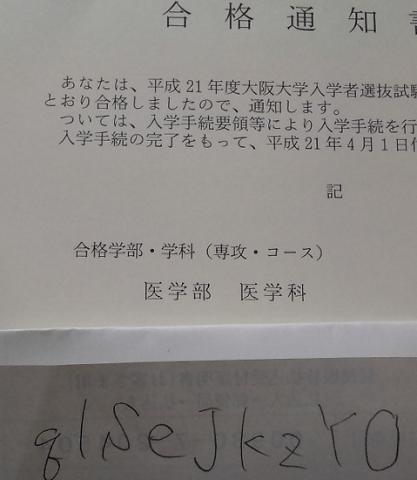 合格通知書
あなたは、平成21年度大阪大学入学者選抜試験
とおり合格しましたので、通知します。
ついては、入学手続要領等により入学手続を行
入学手続の完了をもって、平成21年4月1日付
記
合格学部・学科（専攻・コース）
医学部 医学科
qlSeJkzYO